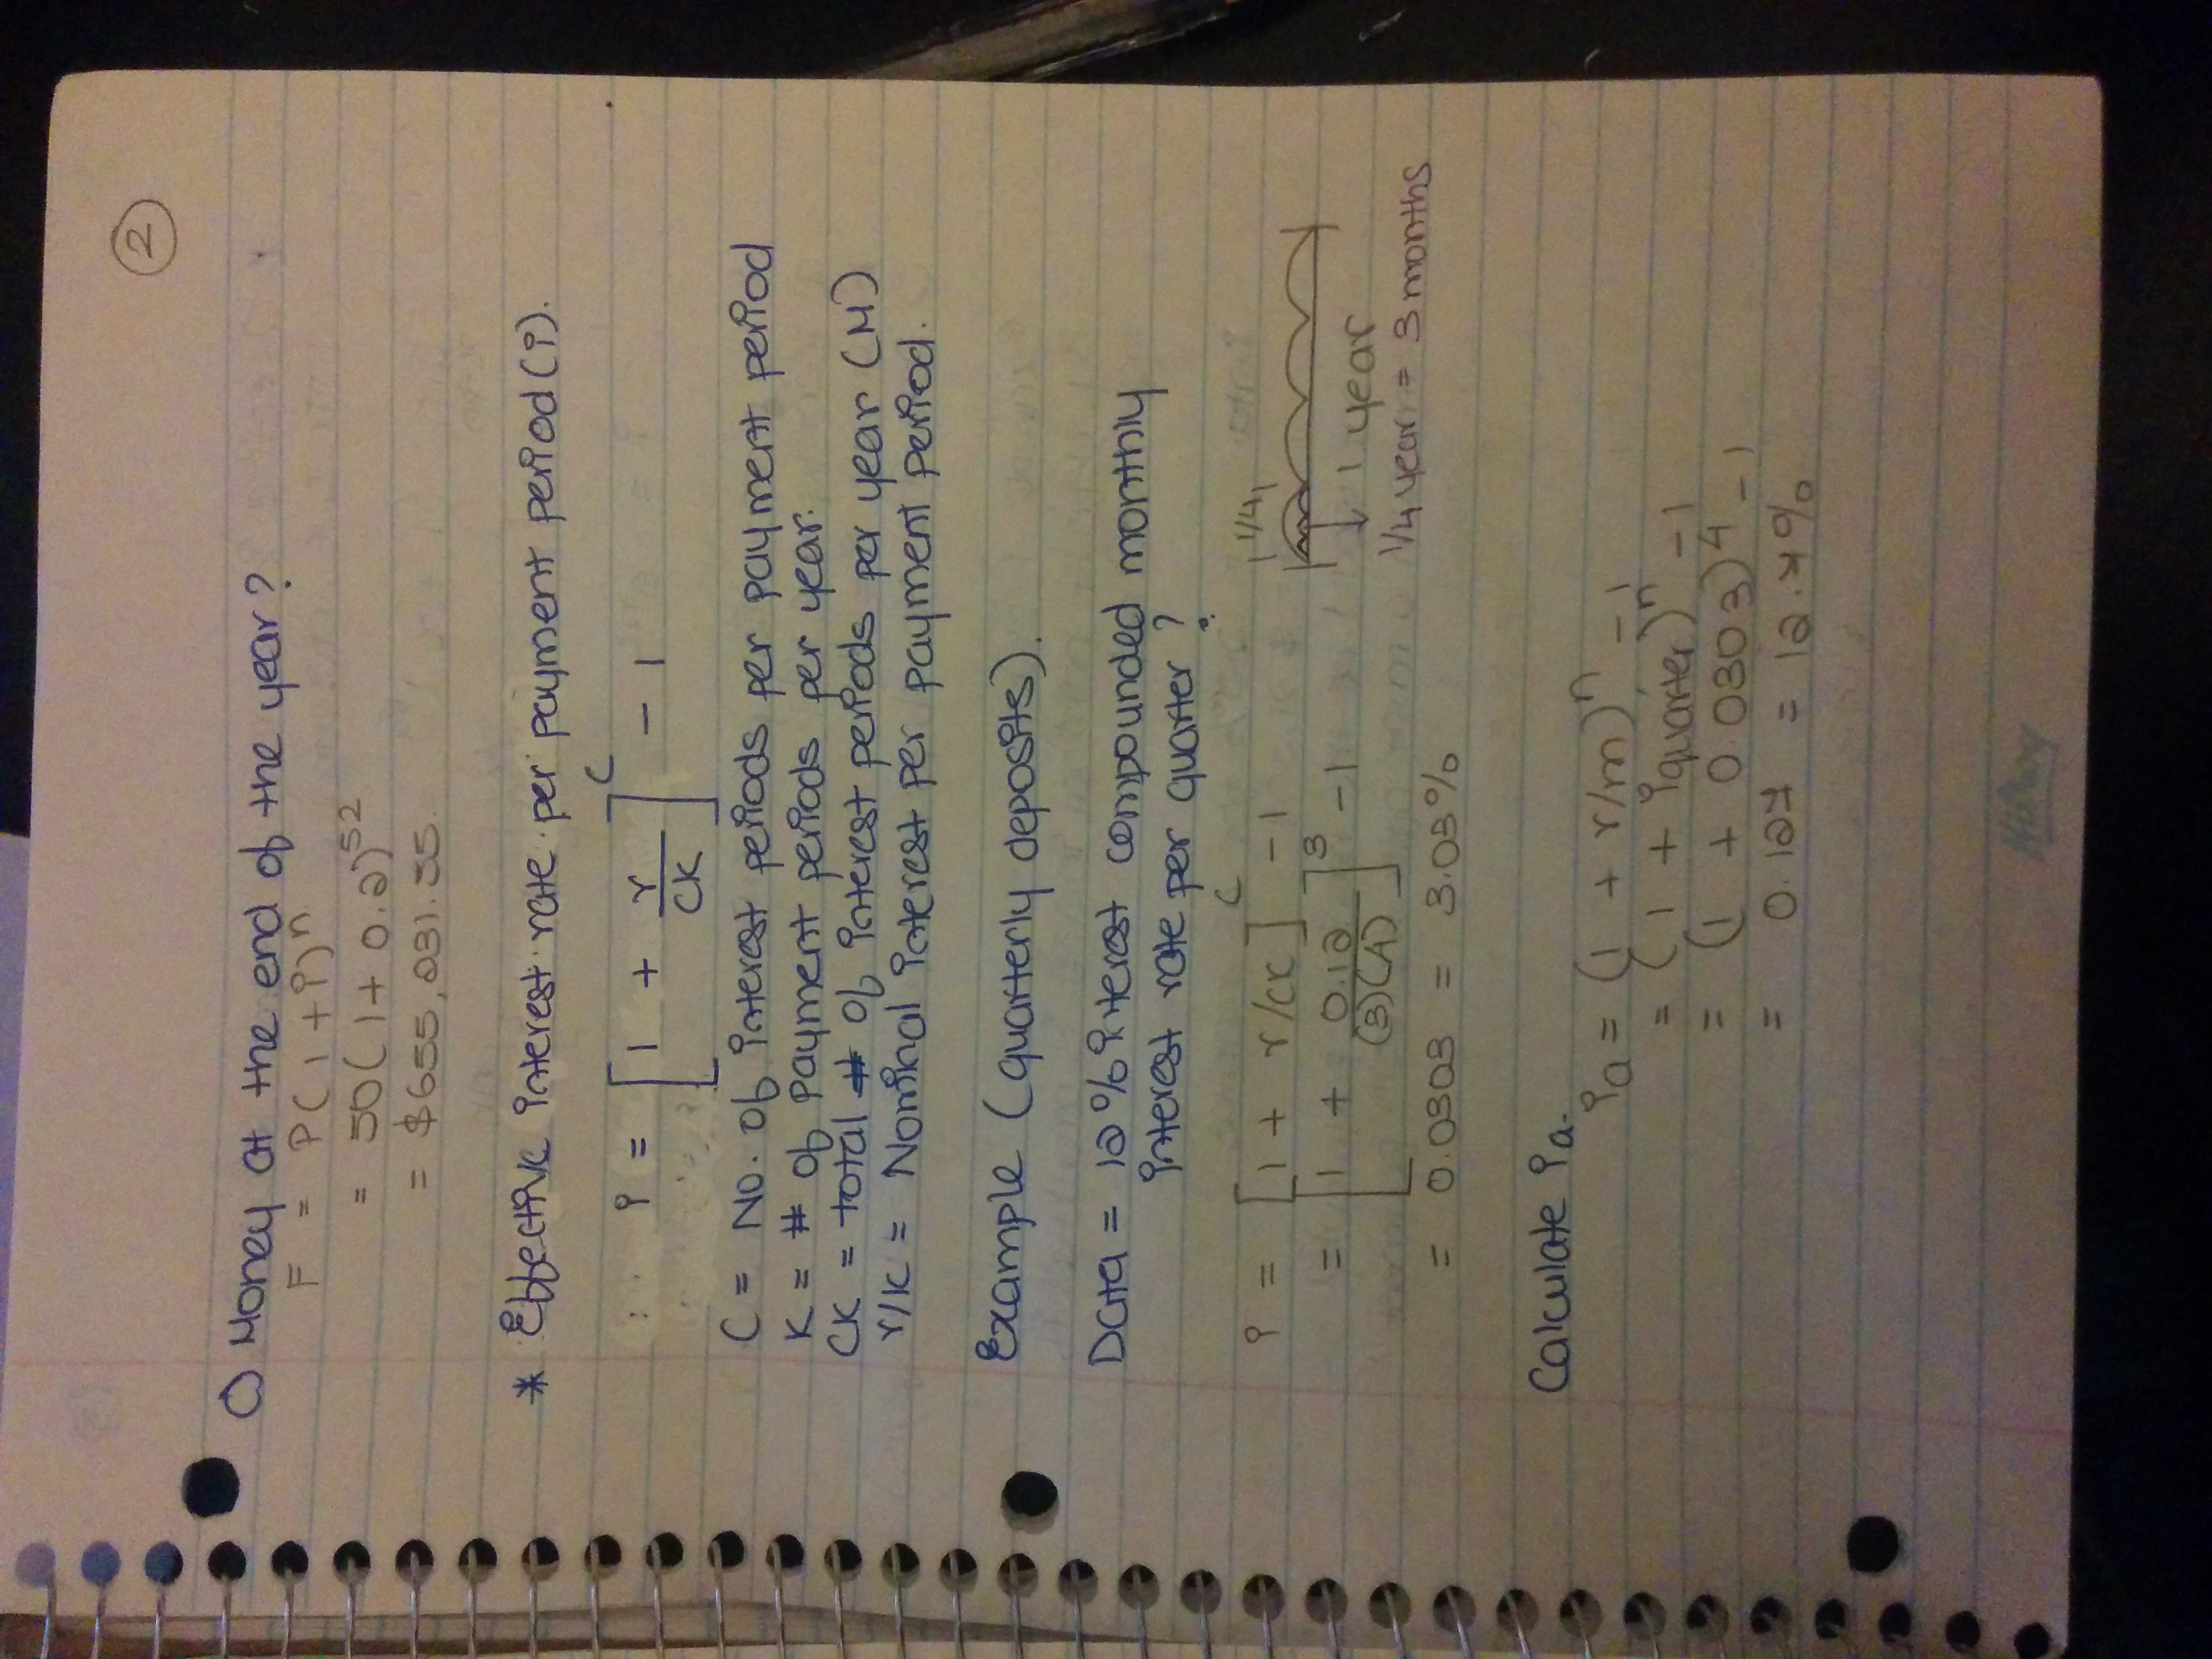 2
O Money at the end of the year?
F = P(1+i)^n
= 50(1+0.2)^52
= $655,231.35.
* Effective interest rate per payment period (i).
i = [1 + r/CK]^C - 1
C = No. of interest periods per payment period
K = # of payment periods per year.
CK = total # of interest periods per year (M)
r/K = Nominal interest per payment period.
Example (quarterly deposits).
Data = 12% interest compounded monthly
interest rate per quarter?
i = [1 + r/CK]^C - 1
1/4
= [1 + 0.12/(3)(4)]^3 - 1
1 year
= 0.0303 = 3.03%
1/4 year = 3 months
Calculate ia.
ia = (1 + r/m)^n - 1
= (1 + iquarter)^n - 1
= (1 + 0.0303)^4 - 1
= 0.127 = 12.7%
Hilroy